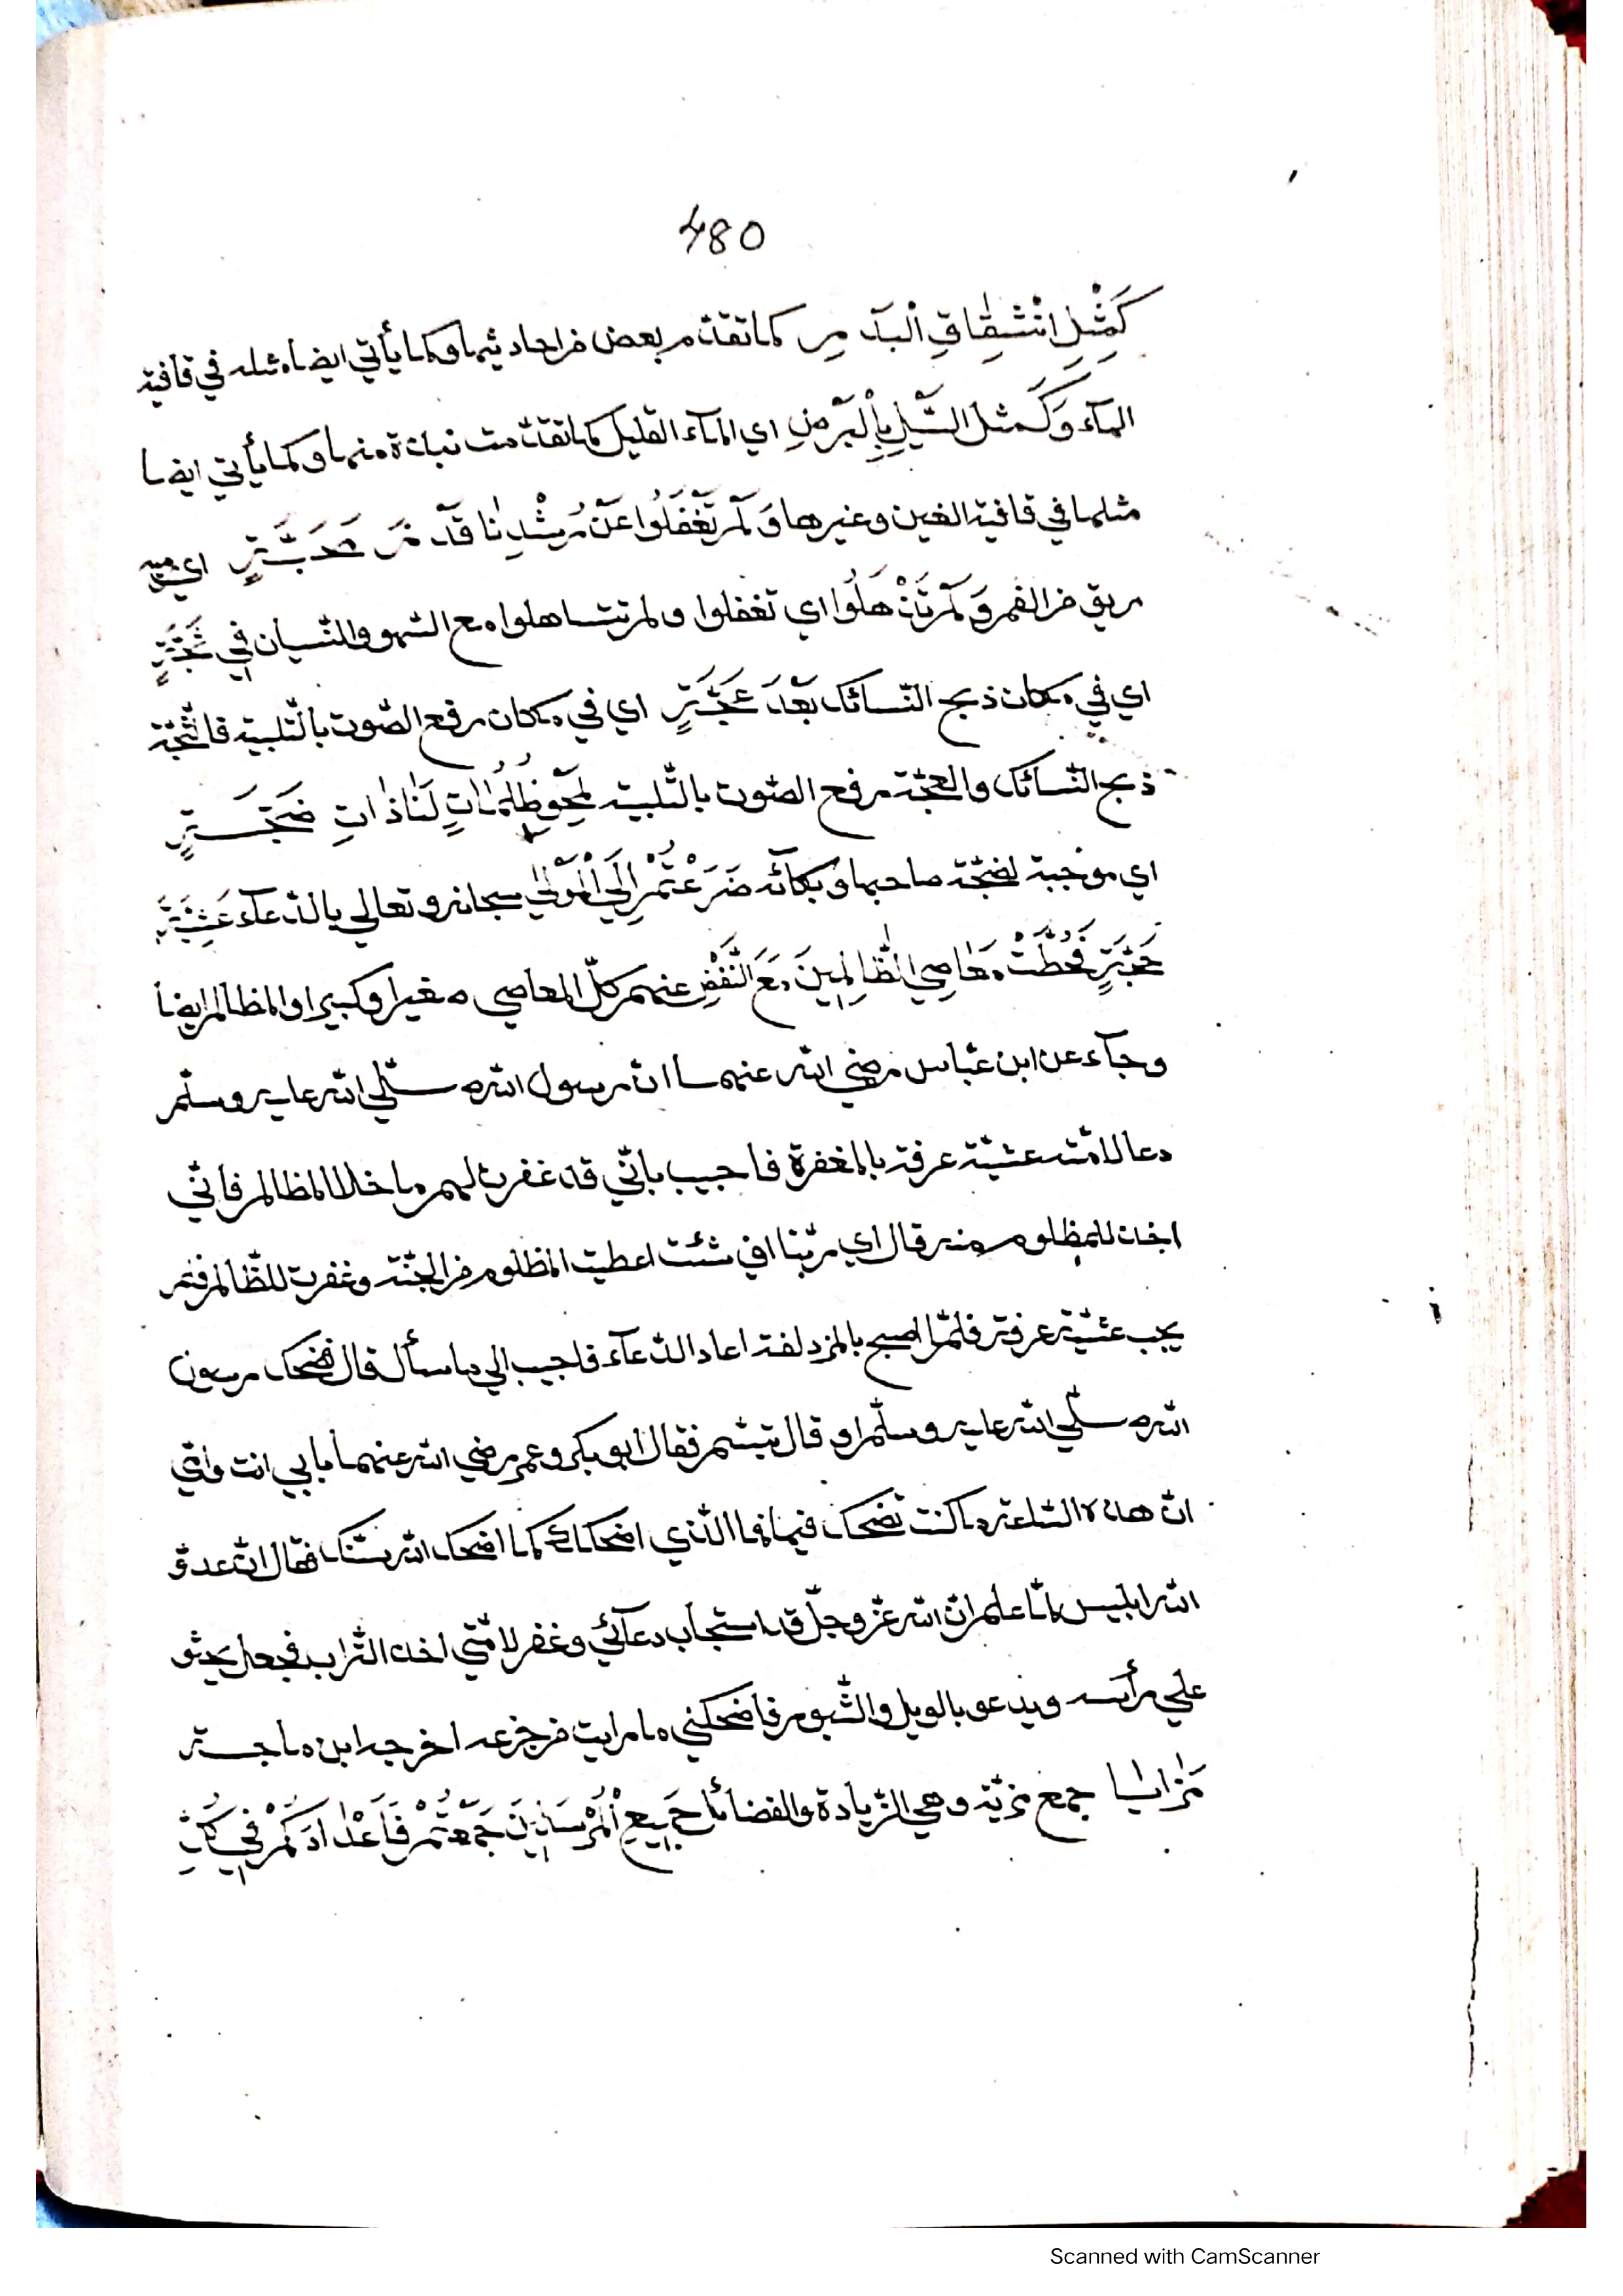 480
كَمِثْلِ انْشِقَاقِ الْبَدْرِ كما تقدم بعض من احاديثها وكما يأتي ايضا مثله في قافية
الهآء وَكَمثل السَّيْلِ بِالْبَرْضِ اي المآء القليل كما تقدمت نبذة منها وكما يأتي ايضا
مثلها في قافية الغين وغيرها وَلَمْ تَغْفَلُوا عَنْ رُشْدِنَا قَدْرَ مَجَّةٍ اي رمية
ريق من الفم وَلَمْ تَذْهَلُوا اي تغفلوا ولم تتساهلوا مع السّهو والنّسيان فِي ثَجَّةٍ
اي في مكان ذبح النّسائك بَعْدَ عَجَّةٍ اي في مكان رفع الصّوت بالتّلبية فالثّجّة
ذبح النّسائك والعجّة رفع الصّوت بالتّلبية لِمَحْوِ ظُلُمَاتٍ لَنَا ذَاتِ ضَجَّةٍ
اي موجبة لضجّة صاحبها وبكائه ضَرَعْتُمْ إِلَى الْمَوْلٰى سبحانه وتعالي بالدّعآء عَشِيَّةَ
حَجَّةٍ فَحُطَّتْ مَعَاصِي الظَّالِمِينَ مَعَ النَّفْضِ عنهم كلّ المعاصي صغيرا وكبيرا والمظالم ايضا
وجآء عن ابن عبّاس رضي الله عنهما انّ رسول الله صلّي الله عليه وسلّم
دعا لامّته عشيّة عرفة بالمغفرة فاجيب بانّي قد غفرت لهم ما خلا المظالم فانّي
اخذ للمظلوم منه قال اي ربّنا ان شئت اعطيت المظلوم من الجنّة وغفرت للظّالم فلم
يجب عشيّة عرفة فلمّا اصبح بالمزدلفة اعاد الدّعآء فاجيب الي ما سأل قال فضحك رسول
الله صلّي الله عليه وسلّم او قال تبسّم فقال ابو بكر وعمر رضي الله عنهما بابي انت وامّي
انّ هذه لسّاعة ما كنت تضحك فيها فما الّذي اضحكك كما اضحك الله سنّك فقال انّ عدوّ
الله ابليس لمّا علم انّ الله عزّ وجلّ قد استجاب دعآئي وغفر لامّتي اخذ التّراب فجعل يحثو
علي رأسه ويدعو بالويل والثّبور فأضحكني ما رايت من جزعه اخرجه ابن ماجة
مَزَايَا جمع مزيّة وهي الزّيادة والفضائل جَمِيعِ الْمُرْسَلِينَ جَمَعْتُمْ فَأَعْدَادَكُمْ فِي كُلِّ
Scanned with CamScanner